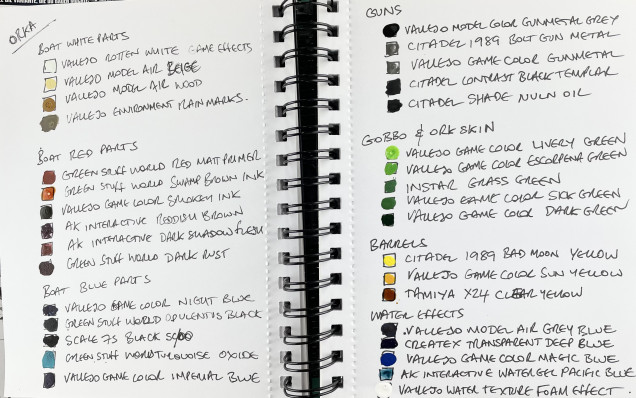 ORKA
BOAT WHITE PARTS
VALLEJO ROTTEN WHITE GAME EFFECTS
VALLEJO MODEL AIR BEIGE
VALLEJO MODEL AIR WOOD
VALLEJO ENVIRONMENT RAIN MARKS.
BOAT RED PARTS
GREEN STUFF WORLD RED MATT PRIMER
GREEN STUFF WORLD SWAMP BROWN INK
VALLEJO GAME COLOR SMOKEY INK
AK INTERACTIVE REDDISH BROWN
AK INTERACTIVE DARK SHADOW FLESH
GREEN STUFF WORLD DARK RUST
BOAT BLUE PARTS
VALLEJO GAME COLOR NIGHT BLUE
GREEN STUFF WORLD OPULENTUS BLACK
SCALE 75 BLACK
GREEN STUFF WORLD TURQUOISE OXIDE
VALLEJO GAME COLOR IMPERIAL BLUE
GUNS
VALLEJO MODEL COLOR GUNMETAL GREY
CITADEL 1989 BOLT GUN METAL
VALLEJO GAME COLOR GUNMETAL
CITADEL CONTRAST BLACK TEMPLAR
CITADEL SHADE NULN OIL
GOBBO & ORK SKIN
VALLEJO GAME COLOR LIVERY GREEN
VALLEJO GAME COLOR ESCORPENA GREEN
INSTAR GRASS GREEN
VALLEJO GAME COLOR SICK GREEN
VALLEJO GAME COLOR DARK GREEN
BARRELS
CITADEL 1989 BAD MOON YELLOW
VALLEJO GAME COLOR SUN YELLOW
TAMIYA X24 CLEAR YELLOW
WATER EFFECTS
VALLEJO MODEL AIR GREY BLUE
CREATEX TRANSPARENT DEEP BLUE
VALLEJO GAME COLOR MAGIC BLUE
AK INTERACTIVE WATER GEL PACIFIC BLUE
VALLEJO WATER TEXTURE FOAM EFFECT.